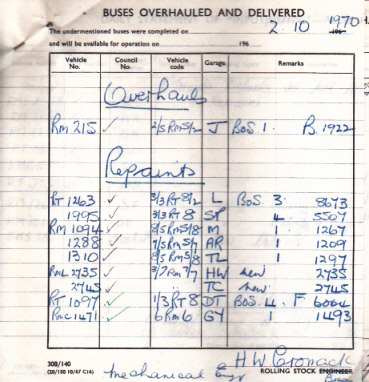 BUSES OVERHAULED AND DELIVERED
The undermentioned buses were completed on 2. 10 1970 196
and will be available for operation on 196
Vehicle No. Council No. Vehicle code Garage Remarks
Overhauls
RM 215 ✓ 2/5 RM5/2 J BOS 1. B. 1922
Repaints
RT 1263 ✓ 3/3 RT 8/2 L BOS 3 8673
1995 ✓ 3/3 RT 8 SP 4 5507
RM 1094 ✓ M 1 1267
1288 ✓ AR 1 1209
1310 ✓ TL 1 1297
RML 2735 ✓ HW new 2735
2745 ✓ TC new 2745
RT 1097 ✓ 1/3 RT 8 DT BOS 4. F
RMC 1471 ✓ 6 RM 6 GY 1 1493
308/140
(20/150 10/67 C14)
Mechanical Engr H W Cromack
ROLLING STOCK ENGINEER